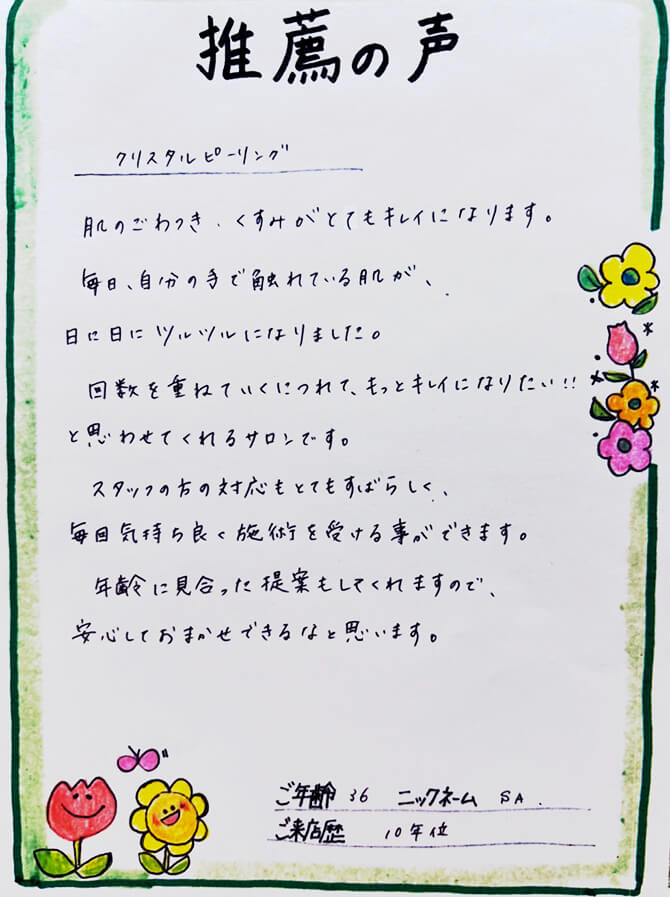 推薦の声
クリスタルピーリング
肌のごわつき、くすみがとてもキレイになります。
毎日、自分の手で触れている肌が、
日に日にツルツルになりました。
回数を重ねていくにつれて、もっとキレイになりたい!!
と思わせてくれるサロンです。
スタッフの方の対応もとてもすばらしく、
毎回気持ち良く施術を受ける事ができます。
年齢に見合った提案もしてくれますので、
安心しておまかせできるなと思います。
ご年齢 36 ニックネーム SA.
ご来店歴 10年位